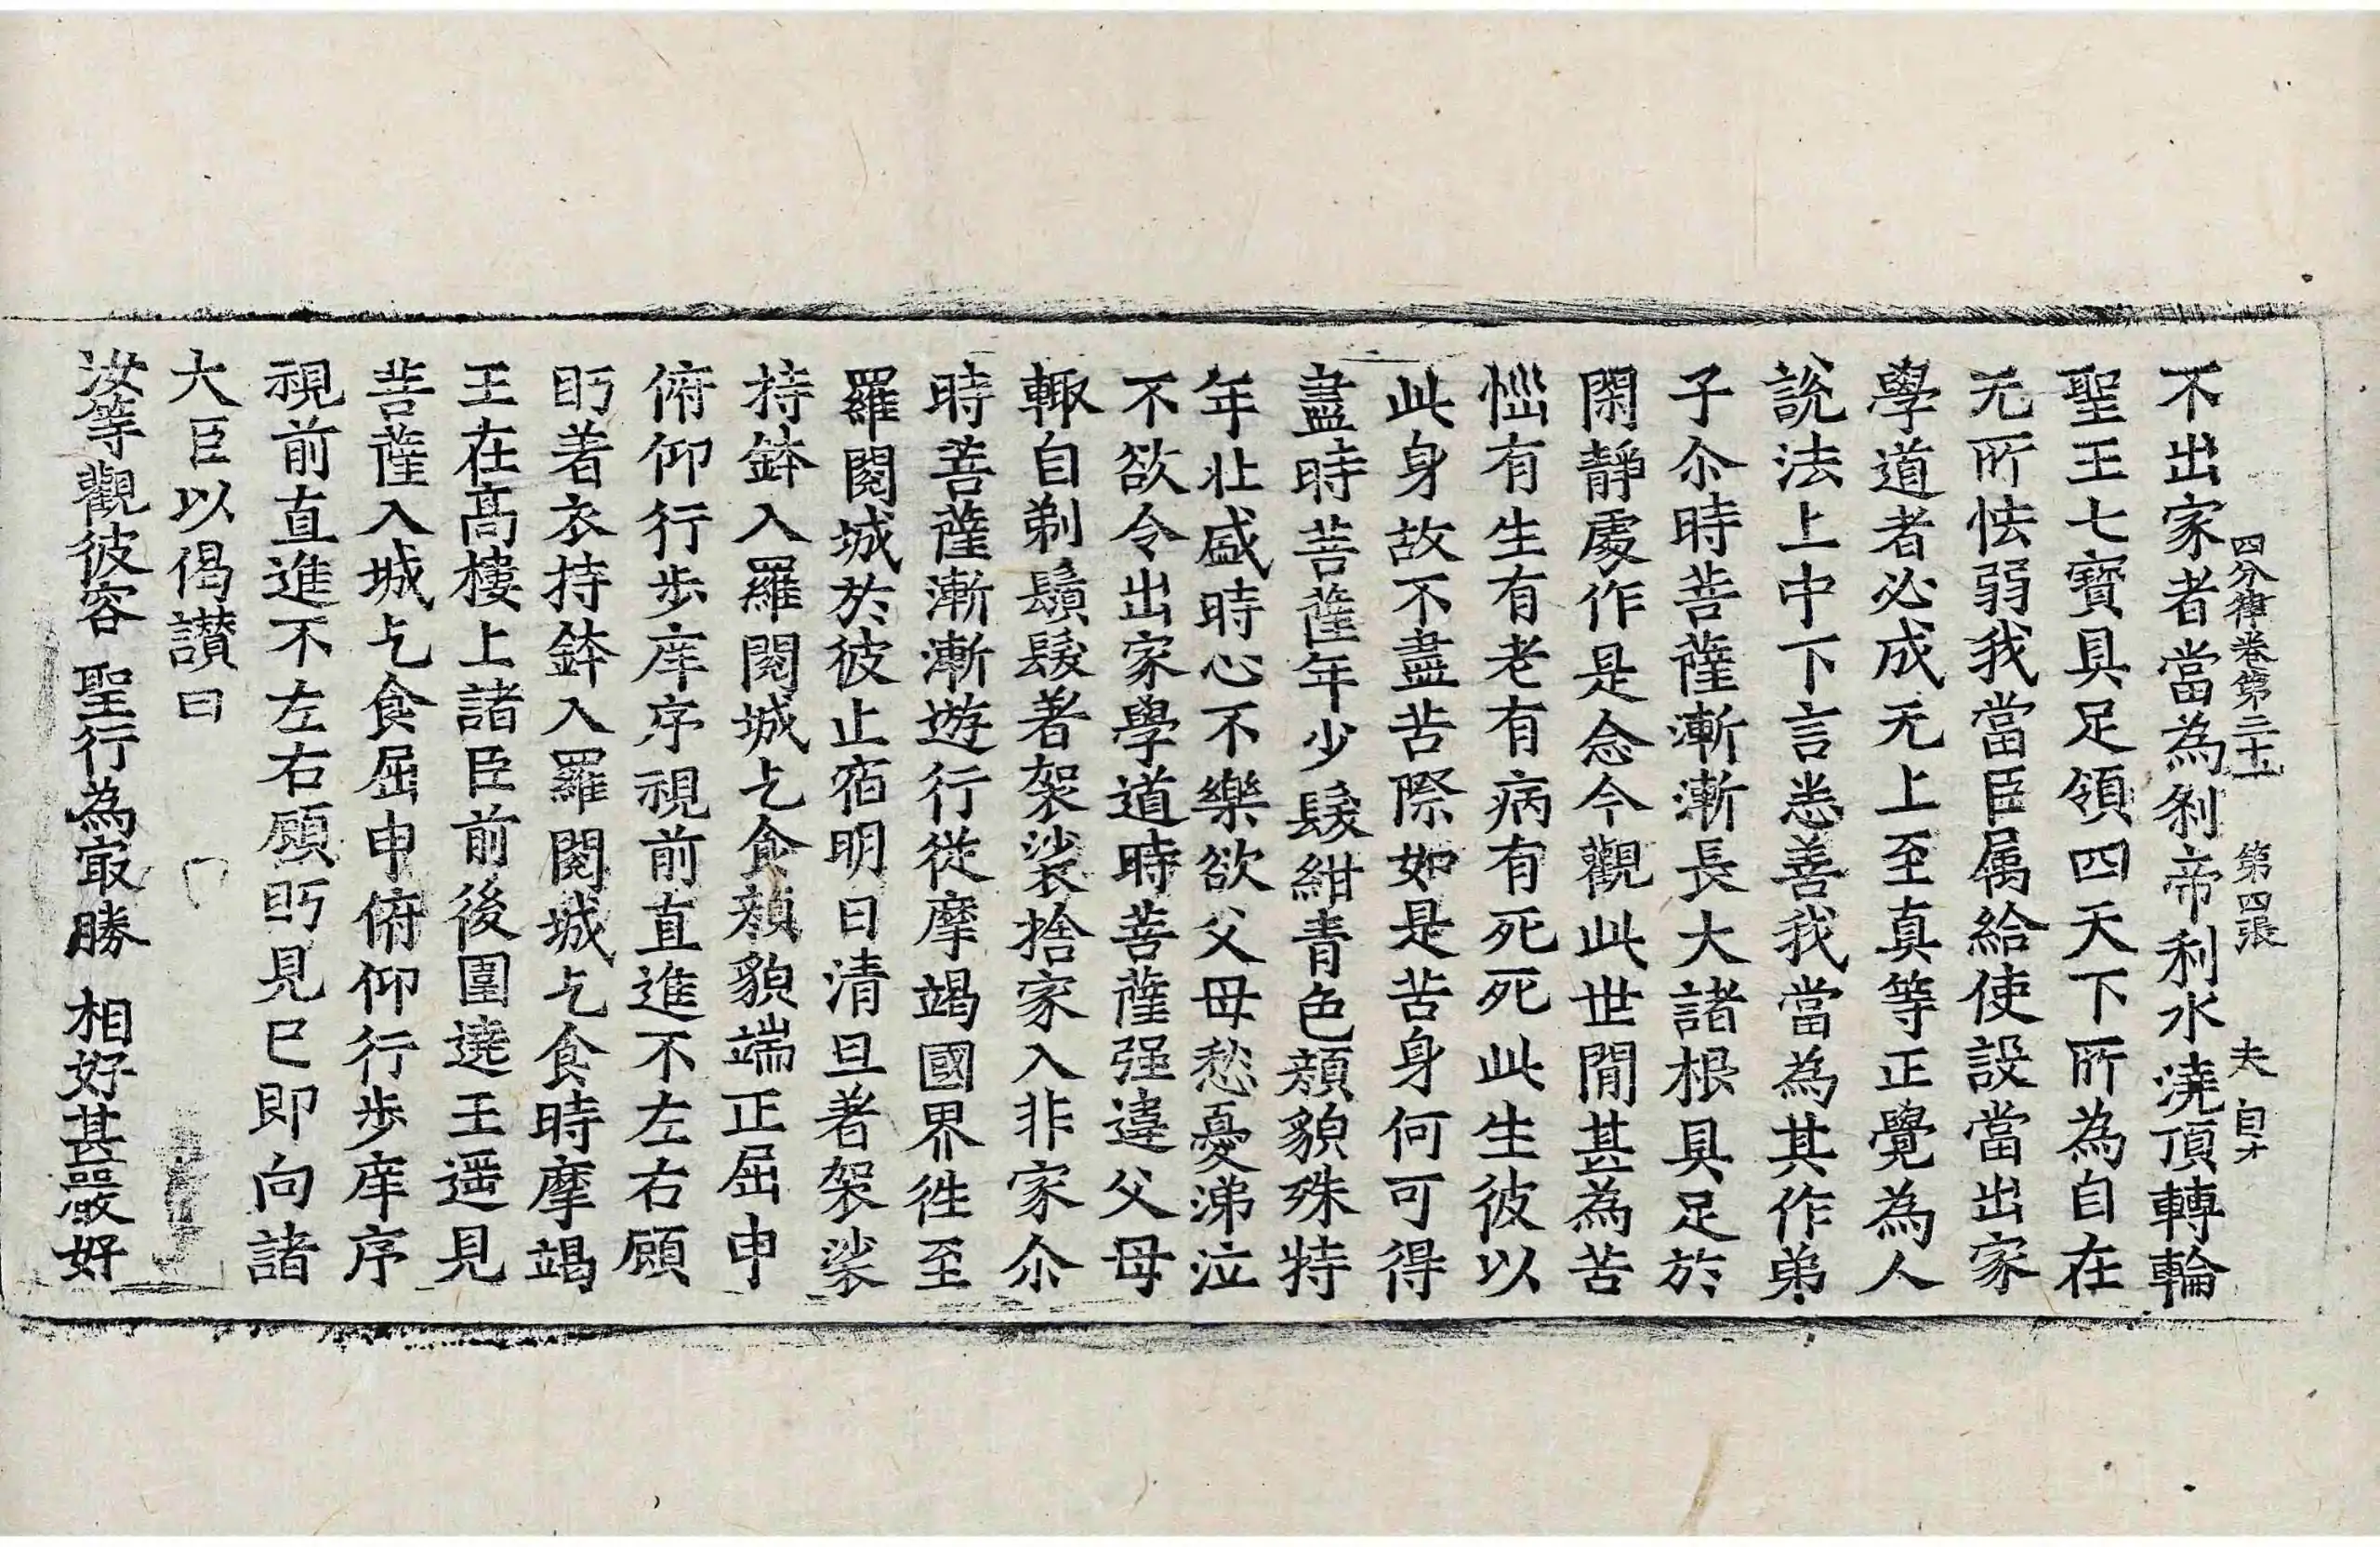 四分律卷第三十一 第四張 夫 自才
不出家者當為刹帝利水澆頂轉輪
聖王七寶具足領四天下所為自在
无所怯弱我當臣属給使設當出家
學道者必成无上至真等正覺為人
說法上中下言悉善我當為其作弟
子尒時菩薩漸漸長大諸根具足於
閑靜處作是念今觀此世閒甚為苦
惱有生有老有病有死死此生彼以
此身故不盡苦際如是苦身何可得
盡時菩薩年少髮紺青色顏貌殊特
年壯盛時心不樂欲父母愁憂涕泣
不欲令出家學道時菩薩强違父母
輙自剃鬚髮著袈裟捨家入非家尒
時菩薩漸漸遊行從摩竭國界徃至
羅閱城於彼止宿明日清旦著袈裟
持鉢入羅閱城乞食顏貌端正屈申
俯仰行步庠序視前直進不左右顧
眄著衣持鉢入羅閱城乞食時摩竭
王在高樓上諸臣前後圍遶王遥見
菩薩入城乞食屈申俯仰行步庠序
視前直進不左右顧眄見已即向諸
大臣以偈讃曰
汝等觀彼容 聖行為㝡勝 相好甚嚴好